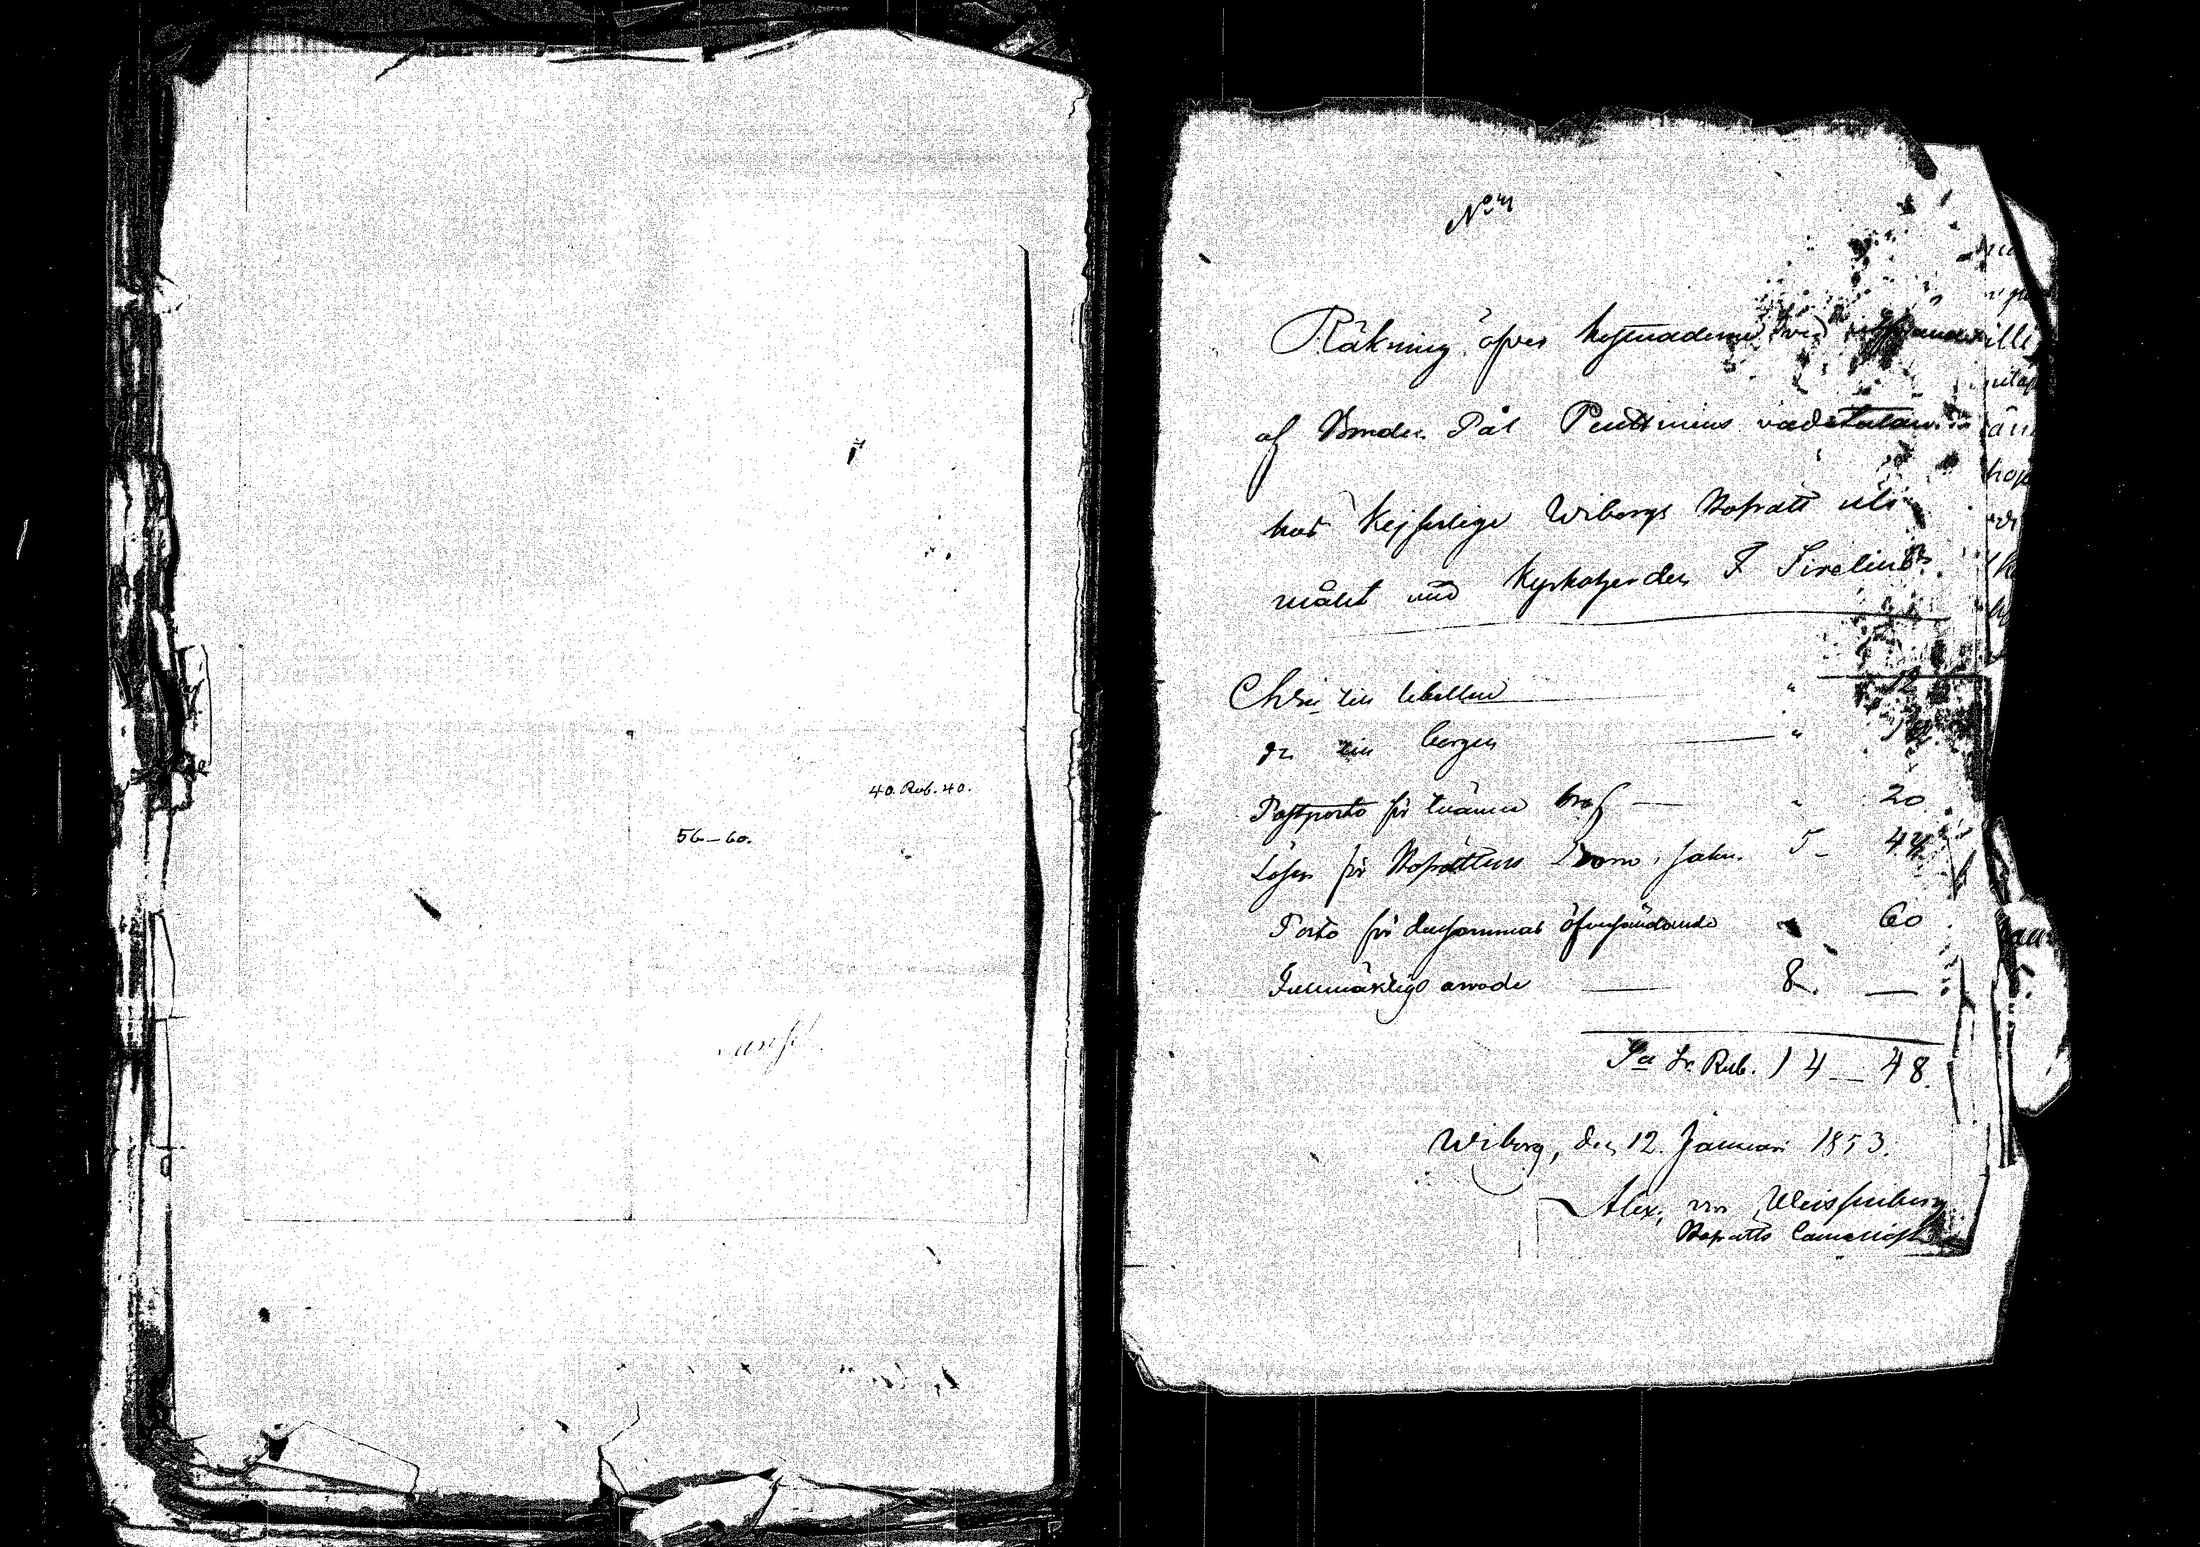 40. Rub. 40.
56-60.
Räkning öfver kostnaderne vid
af Bonden Pål Penttinens vadetalan
hos Kejserlige Wiborgs Hofrätt uti
målet med Kyrkoherden F Sirelius.
Chri till libellen " 12
Do till " 12
Postporto för tvänne bref — " 20
Lösen för Hofrättens Dom, Salu. 5- 44
Porto för densammas öfversändande " 60
Fullmäktigs arvode — 8. —
Sa Sr Rub. 14 — 48.
Wiborg, den 12. Januari 1853.
Alex. von Weissenberg
Hofrätts